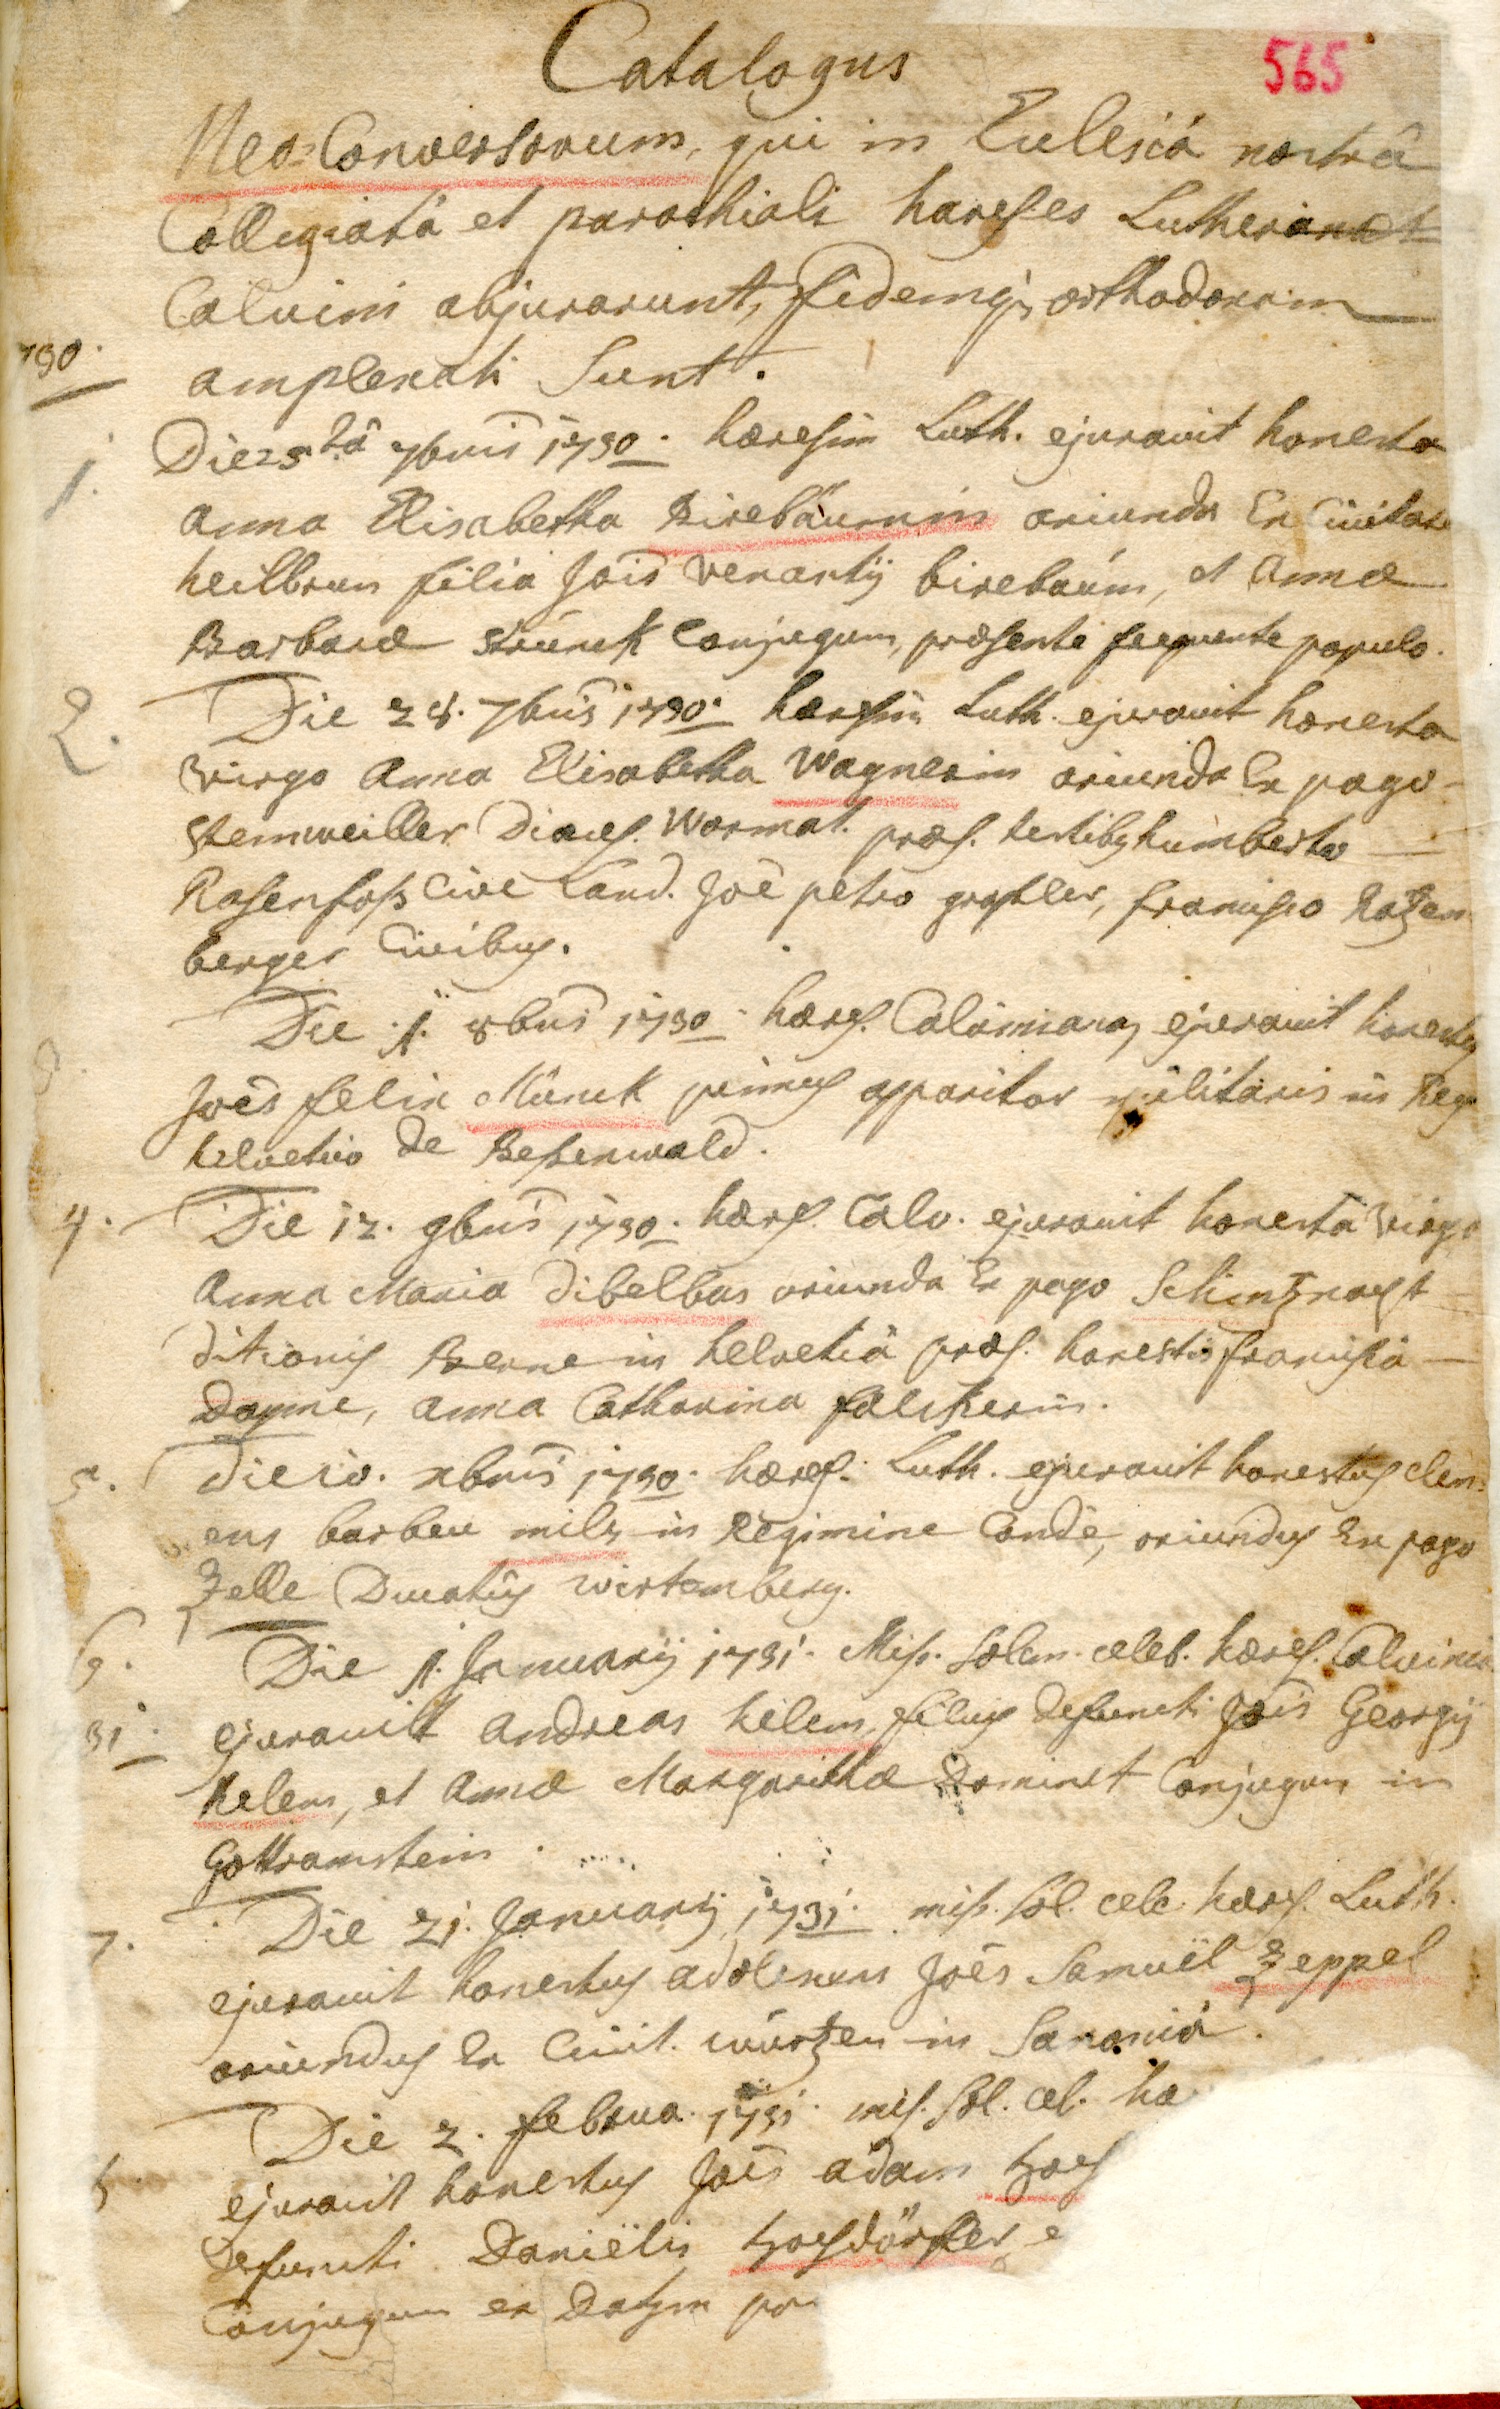 Catalogus
565
Neo-Conversorum, qui in Ecclesiâ nostrâ
Collegiatâ et parochiali hæreses Lutheri et
Calvini abjurarunt, fidemq; orthodoxam
1730.
amplexati sunt.
1. Die 25tâ 7bris 1730. hæresim Luth. ejuravit honesta
Anna Elisabetha Birebäumin oriunda Ex Civitate
heilbrun filia Jois Venantij birebaum, et Annæ
Barbaræ Strunck Conjugum, præsente frequente populo.
2. Die 28. 7bris 1730. hæresim Luth. ejuravit honesta
virgo Anna Elisabetha Wagnerin oriunda Ex pago
Stemweiller Diœces. Wormat. præs. testibus humberto
Rosenfoss Cive Land. Joe petro grosller, francisco Katzen
berger Civibus.
3. Die 1. 8bris 1730. hæres. Calvinianam ejuravit honestus
Joes felix Münck primus apparitor militaris in Reg.
helvetico de Besenwald.
4. Die 12. 9bris 1730. hæres. Calv. ejuravit honesta virgo
Anna Maria Dibelbus oriunda Ex pago Schintznacht
ditionis Berne in helvetiâ præs. honestis franciscâ
Dayme, Anna Catharina falckerin.
5. Die 10. xbris 1730. hæres. Luth. ejuravit honestus clem=
ens barbeu miles in Regimine Condé, oriundus Ex pago
Zelle Ducatus Wirtemberg.
6. Die 1. Januarij 1731. Miss. solem. celeb. hæres. Calvini
31. ejuravit Andreas helem, filius defuncti Jois Georgij
helem, et Annæ Margarithæ Dominet Conjugum in
Gottramstein.
7. Die 21. Januarij 1731. miss. sol. celc. hæres. Luth.
ejuravit honestus adolescens Joes Samuël Zeppel
oriundus Ex Civit. würtzen in Saxoniâ.
Die 2. februa. 1731. mis. sol. cel. hæ
ejuravit honestus Joes adam hoes
defuncti Daniëlis hoesdörffer, e
Conjugum ex